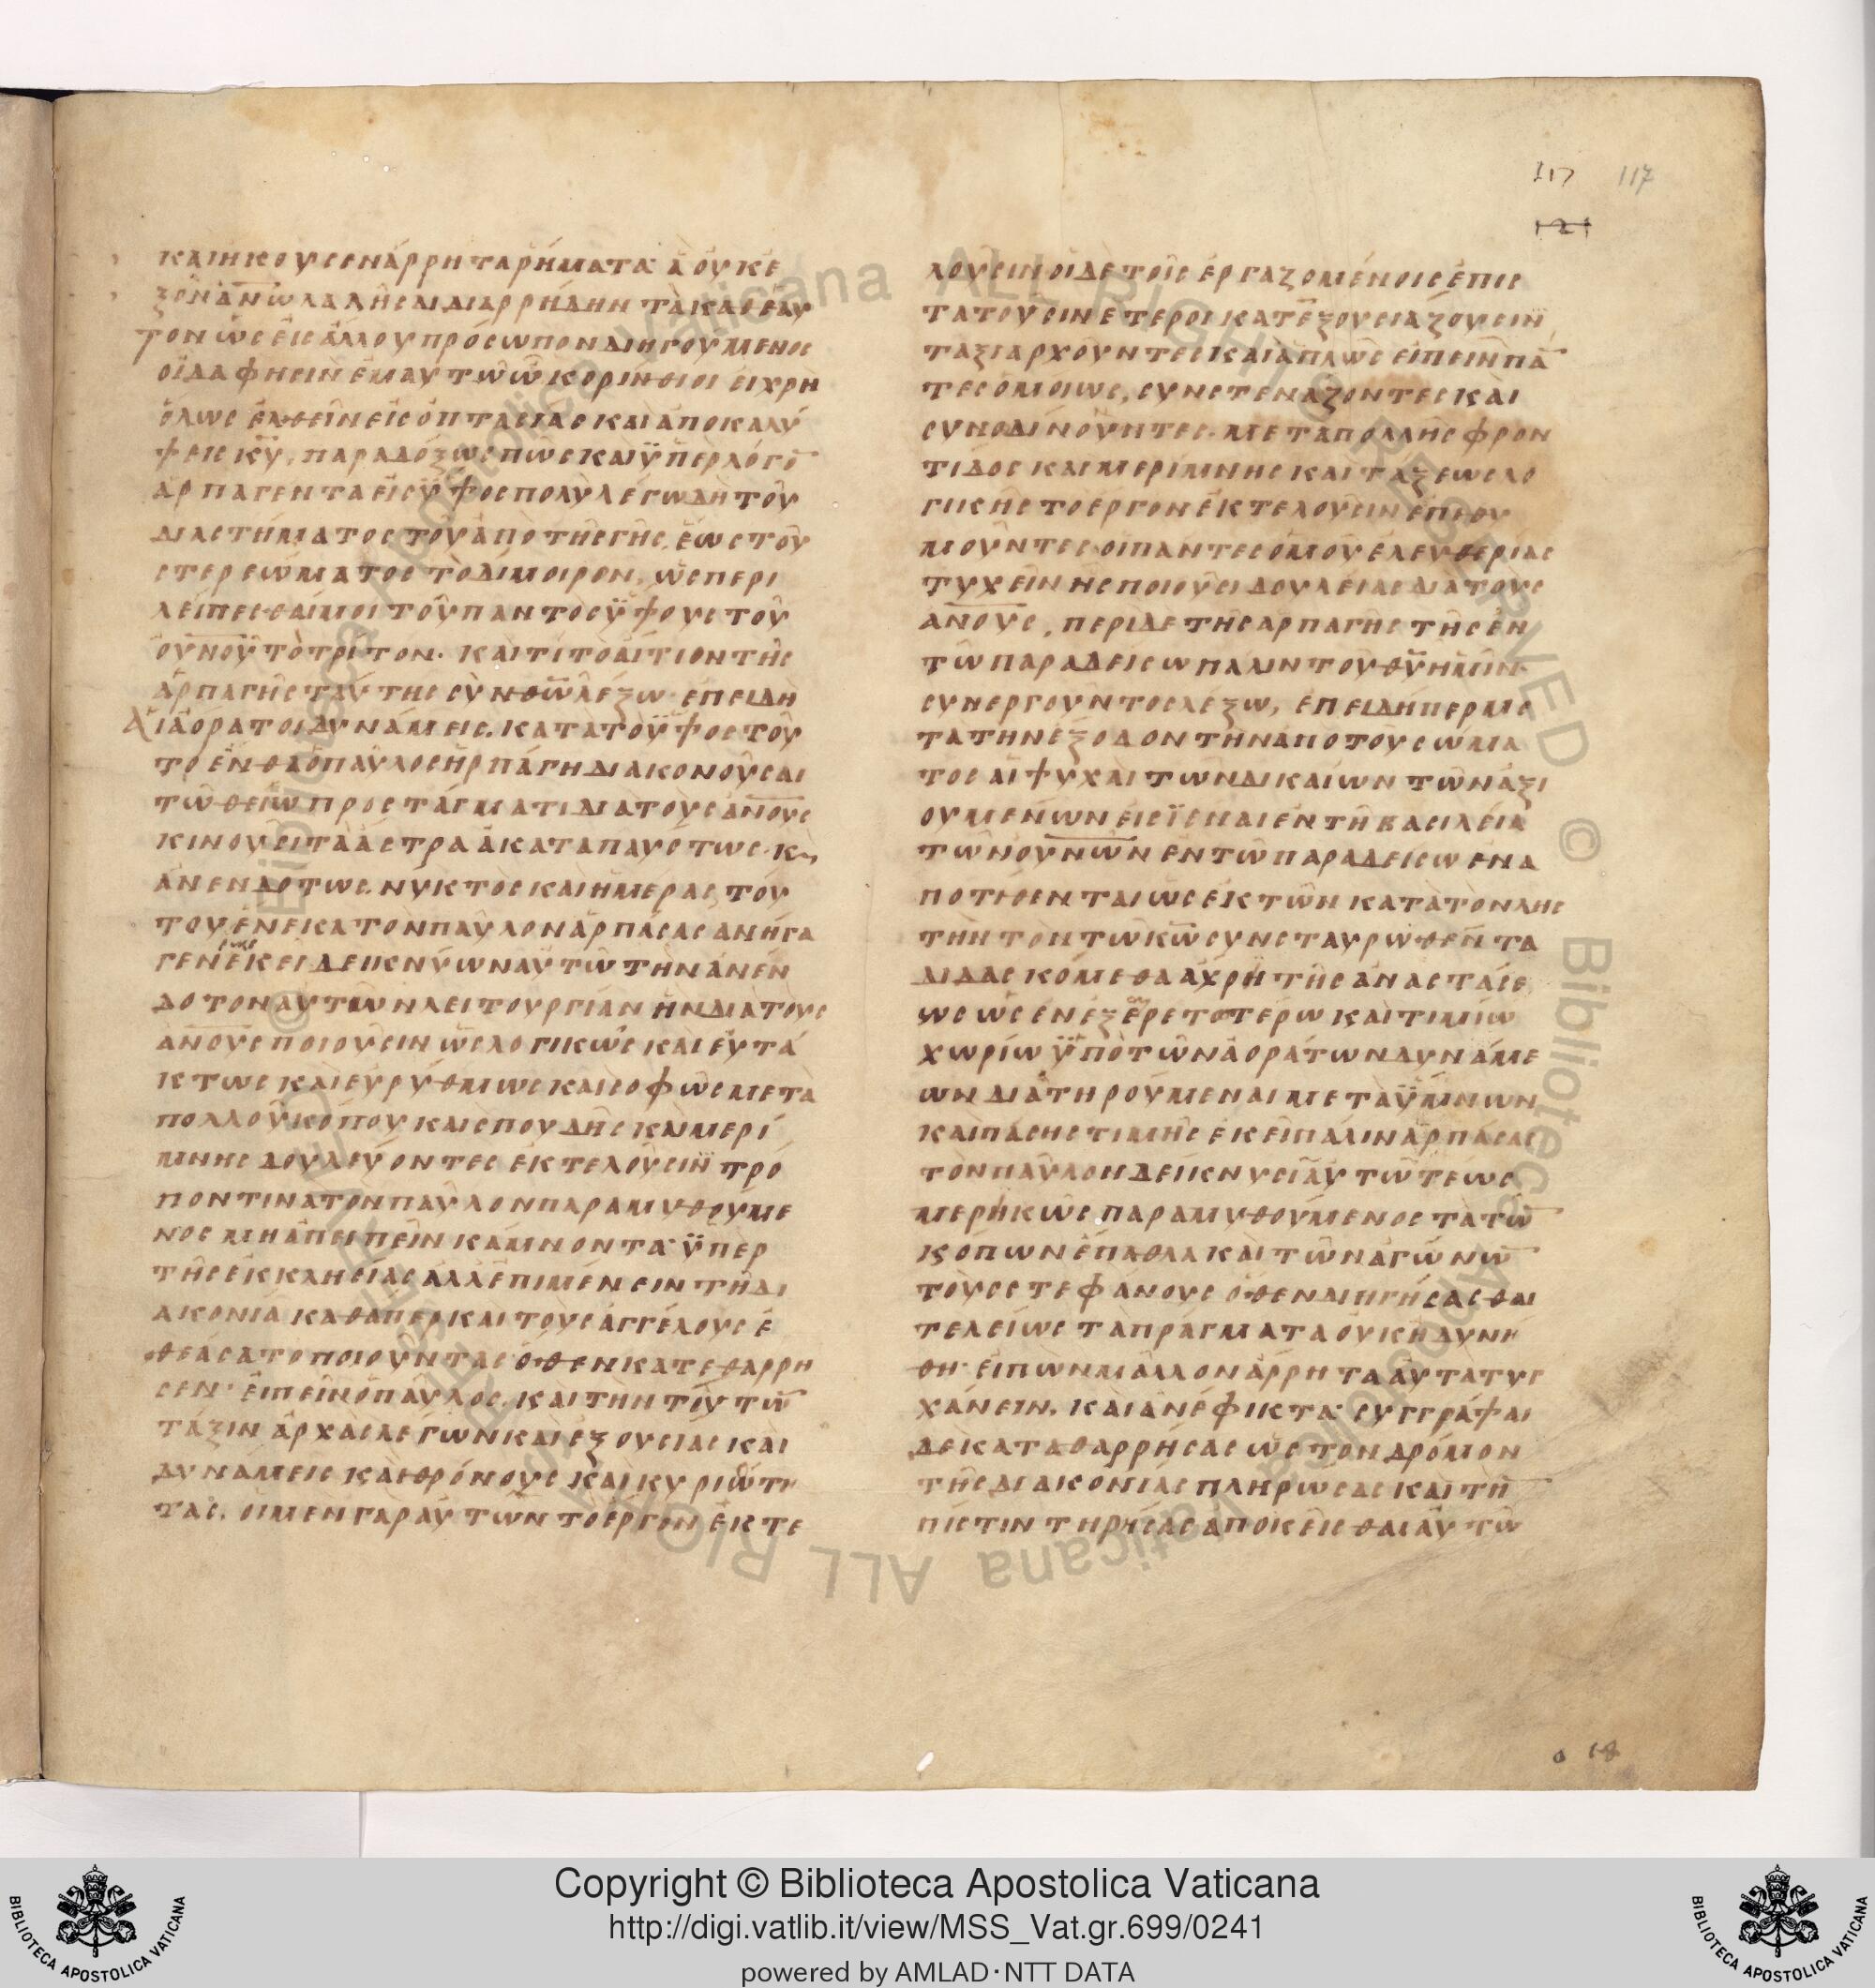 117 117
121
ΚΑΙΗΚΟΥСΕΝΑΡΡΗΤΑΡΗΜΑΤΑ ΑΟΥΚΕ
ΞΟΝΑΝΩΛΑΛΗСΑΙΔΙΑΡΡΗΔΗΝ ΤΑΚΑΘΕΑΥ
ΤΟΝ ΩСΕΙСΑΛΛΟΥΠΡΟСΩΠΟΝΔΙΗΓΟΥΜΕΝΟС
ΟΙΔΑΦΗСΙΝΕΜΑΥΤΩΩΚΟΡΙΝΘΙΟΙ ΕΙΧΡΗ
ΟΛΩС ΕΛΘΕΙΝΕΙСΟΠΤΑСΙΑСΚΑΙΑΠΟΚΑΛΥ
ΨΕΙСΚΥ, ΠΑΡΑΔΟΞΩСΠΩСΚΑΙΫΠΕΡΛΟΓΟ
ΑΡΠΑΓΕΝΤΑΕΙСΫΨΟСΠΟΛΥΛΕΓΩΔΗΤΟΥ
ΔΙΑСΤΗΜΑΤΟС ΤΟΥΑΠΟΤΗСΓΗС, ΕΩСΤΟΥ
СΤΕΡΕΩΜΑΤΟС ΤΟΔΙΜΟΙΡΟΝ, ΩСΠΕΡΙ
ΛΕΙΠΕСΘΑΙΜΟΙΤΟΥΠΑΝΤΟСΫΨΟΥСΤΟΥ
ΟΥΝΟΥΤΟΤΡΙΤΟΝ· ΚΑΙΤΙΤΟΑΙΤΙΟΝΤΗС
ΑΡΠΑΓΗСΤΑΥΤΗССΥΝΘΩΛΕΞΩ· ΕΠΕΙΔΗ
ΑΙΑΟΡΑΤΟΙΔΥΝΑΜΕΙС, ΚΑΤΑΤΟΫΨΟСΤΟΥ
ΤΟΕΝΘΑΟΠΑΥΛΟСΗΡΠΑΓΗΔΙΑΚΟΝΟΥСΑΙ
ΤΩΘΕΙΩΠΡΟСΤΑΓΜΑΤΙΔΙΑΤΟΥСΑΝΟΥС
ΚΙΝΟΥСΙΤΑΑСΤΡΑΑΚΑΤΑΠΑΥСΤΩС·Κς
ΑΝΕΝΔΟΤΩС, ΝΥΚΤΟСΚΑΙΗΜΕΡΑС, ΤΟΥ
ΤΟΥΕΝΕΚΑΤΟΝΠΑΥΛΟΝΑΡΠΑСΑСΑΝΗΓΑ
ΓΕΝΕΚΕΙΔΕΙΚΝΥΩΝΑΥΤΩΤΗΝΑΝΕΝ
ΔΟΤΟΝΑΥΤΩΝΛΕΙΤΟΥΡΓΙΑΝ ΗΝΔΙΑΤΟΥС
ΑΝΟΥСΠΟΙΟΥСΙΝΩСΛΟΓΙΚΩСΚΑΙΕΥΤΑ
ΚΤΩСΚΑΙΕΥΡΥΘΜΩСΚΑΙСΟΦΩСΜΕΤΑ
ΠΟΛΛΟΥΚΟΠΟΥΚΑΙСΠΟΥΔΗСΚΑΙΜΕΡΙ
ΜΝΗСΔΟΥΛΕΥΟΝΤΕС ΕΚΤΕΛΟΥСΙΝΤΡΟ
ΠΟΝΤΙΝΑΤΟΝΠΑΥΛΟΝΠΑΡΑΜΥΘΟΥΜΕ
ΝΟС ΜΗΑΠΕΙΠΕΙΝΚΑΜΝΟΝΤΑΫΠΕΡ
ΤΗСΕΚΚΛΗСΙΑСΑΛΛΕΠΙΜΕΝΕΙΝΤΗΔΙ
ΑΚΟΝΙΑΚΑΘΑΠΕΡΚΑΙΤΟΥСΑΓΓΕΛΟΥСΕ
ΘΕΑСΑΤΟΠΟΙΟΥΝΤΑСΟΘΕΝΚΑΤΕΘΑΡΡΗ
СΕΝ· ΕΙΠΕΙΝΟΠΑΥΛΟС, ΚΑΙΤΗΝΤΟΥΤΩ
ΤΑΞΙΝΑΡΧΑСΛΕΓΩΝΚΑΙΕΞΟΥСΙΑСΚΑΙ
ΔΥΝΑΜΕΙСΚΑΙΘΡΟΝΟΥСΚΑΙΚΥΡΙΟΤΗ
ΤΑС, ΟΙΜΕΝΓΑΡΑΥΤΩΝΤΟΕΡΓΟΝΕΚΤΕ
ΛΟΥСΙΝΟΙΔΕΤΟΙСΕΡΓΑΖΟΜΕΝΟΙСΕΠΙС
ΤΑΤΟΥСΙΝΕΤΕΡΟΙΚΑΤΕΞΟΥСΙΑΖΟΥСΙΝ
ΤΑΞΙΑΡΧΟΥΝΤΕСΚΑΙΑΠΛΩСΕΙΠΕΙΝΠΑ
ΤΕСΟΜΟΙΩС, СΥΝСΤΕΝΑΖΟΝΤΕСΚΑΙ
СΥΝΟΔΙΝΟΥΝΤΕС· ΜΕΤΑΠΟΛΛΗСΦΡΟΝ
ΤΙΔΟСΚΑΙΜΕΡΙΜΝΗСΚΑΙΤΑΞΕΩСΛΟ
ΓΙΚΗСΤΟΕΡΓΟΝΕΚΤΕΛΟΥСΙΝΕΠΙΘΥ
ΜΟΥΝΤΕСΟΙΠΑΝΤΕСΟΜΟΥΕΛΕΥΘΕΡΙΑС
ΤΥΧΕΙΝΗСΠΟΙΟΥСΙΔΟΥΛΕΙΑСΔΙΑΤΟΥС
ΑΝΟΥС, ΠΕΡΙΔΕΤΗСΑΡΠΑΓΗСΤΗСΕΝ
ΤΩΠΑΡΑΔΕΙСΩΠΑΛΙΝΤΟΥΘΥΗΜΙΝ
СΥΝΕΡΓΟΥΝΤΟСΛΕΞΩ, ΕΠΕΙΔΗΠΕΡΜΕ
ΤΑΤΗΝΕΞΟΔΟΝΤΗΝΑΠΟΤΟΥСΩΜΑ
ΤΟСΑΙΨΥΧΑΙΤΩΝΔΙΚΑΙΩΝΤΩΝΑΞΙ
ΟΥΜΕΝΩΝΕΙСΪΕΝΑΙΕΝΤΗΒΑСΙΛΕΙΑ
ΤΩΝΟΥΝΩΝΕΝΤΩΠΑΡΑΔΕΙСΩΕΝΑ
ΠΟΤΙΘΕΝΤΑΙΩСΕΚΤΩΝΚΑΤΑΤΟΝΛΗС
ΤΗΝΤΟΝΤΩΚΩСΥΝСΤΑΥΡΩΘΕΝΤΑ
ΔΙΔΑСΚΟΜΕΘΑΑΧΡΗΤΗСΑΝΑСΤΑСΕ
ΩСΩСΕΝΕΞΕΡΕΤΟΤΕΡΩΚΑΙΤΙΜΙΩ
ΧΩΡΙΩΫΠΟΤΩΝΑΟΡΑΤΩΝΔΥΝΑΜΕ
ΩΝΔΙΑΤΗΡΟΥΜΕΝΑΙΜΕΤΑΫΜΝΩΝ
ΚΑΙΠΑСΗСΤΙΜΗСΕΚΕΙΠΑΛΙΝΑΡΠΑСΑС
ΤΟΝΠΑΥΛΟΝΔΕΙΚΝΥСΙΑΥΤΩΤΕΩС
ΜΕΡΗΚΩСΠΑΡΑΜΥΘΟΥΜΕΝΟСΤΑΤΩ
ΚΟΠΩΝΕΠΑΘΛΑΚΑΙΤΩΝΑΓΩΝΩ
ΤΟΥССΤΕΦΑΝΟΥСΟΘΕΝΔΙΗΓΗСΑСΘΑΙ
ΤΕΛΕΙΩСΤΑΠΡΑΓΜΑΤΑΟΥΚΗΔΥΝΗ
ΘΗ· ΕΙΠΩΝΜΑΛΛΟΝΑΡΡΗΤΑΑΥΤΑΤΥΓ
ΧΑΝΕΙΝ, ΚΑΙΑΝΕΦΙΚΤΑ· СΥΓΓΡΑΨΑΙ
ΔΕΚΑΤΑΘΑΡΡΗСΑСΩСΤΟΝΔΡΟΜΟΝ
ΤΗСΔΙΑΚΟΝΙΑСΠΛΗΡΩСΑСΚΑΙΤΗ
ΠΙСΤΙΝΤΗΡΗСΑСΑΠΟΚΕΙСΘΑΙΑΥΤΩ
Copyright © Biblioteca Apostolica Vaticana
http://digi.vatlib.it/view/MSS_Vat.gr.699/0241
powered by AMLAD·NTT DATA
BIBLIOTECA APOSTOLICA VATICANA
BIBLIOTECA APOSTOLICA VATICANA